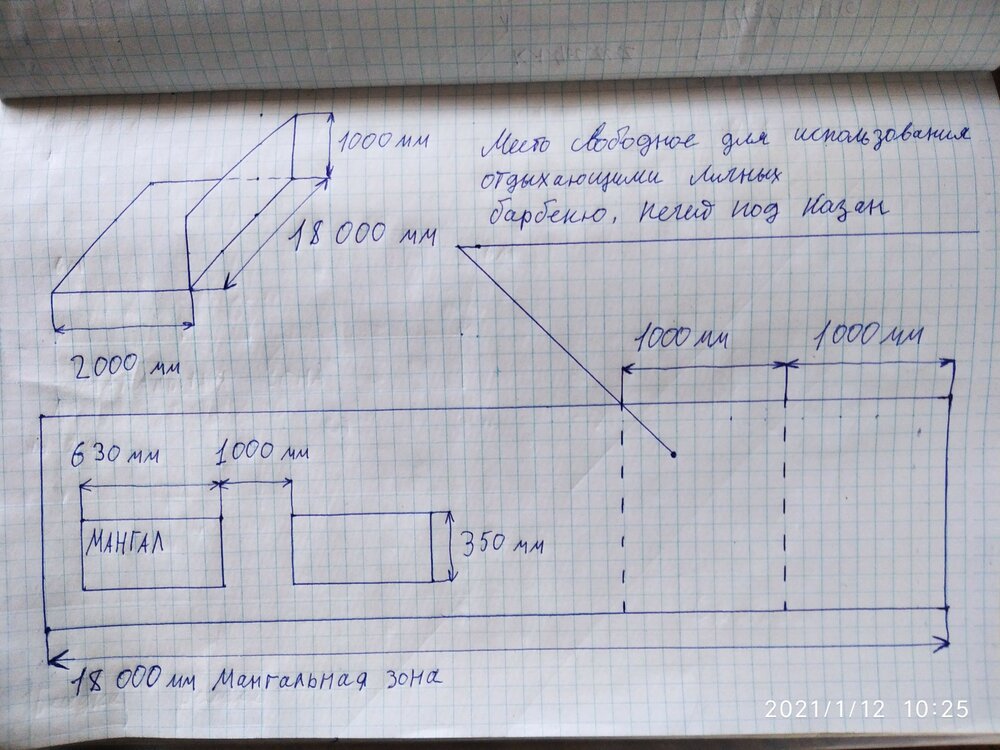 1000 мм
18 000 мм
2000 мм
Место свободное для использования
отдыхающими личных
барбекю, печей под казан
1000 мм
1000 мм
630 мм
1000 мм
МАНГАЛ
350 мм
18 000 мм Мангальная зона
2021/1/12 10:25